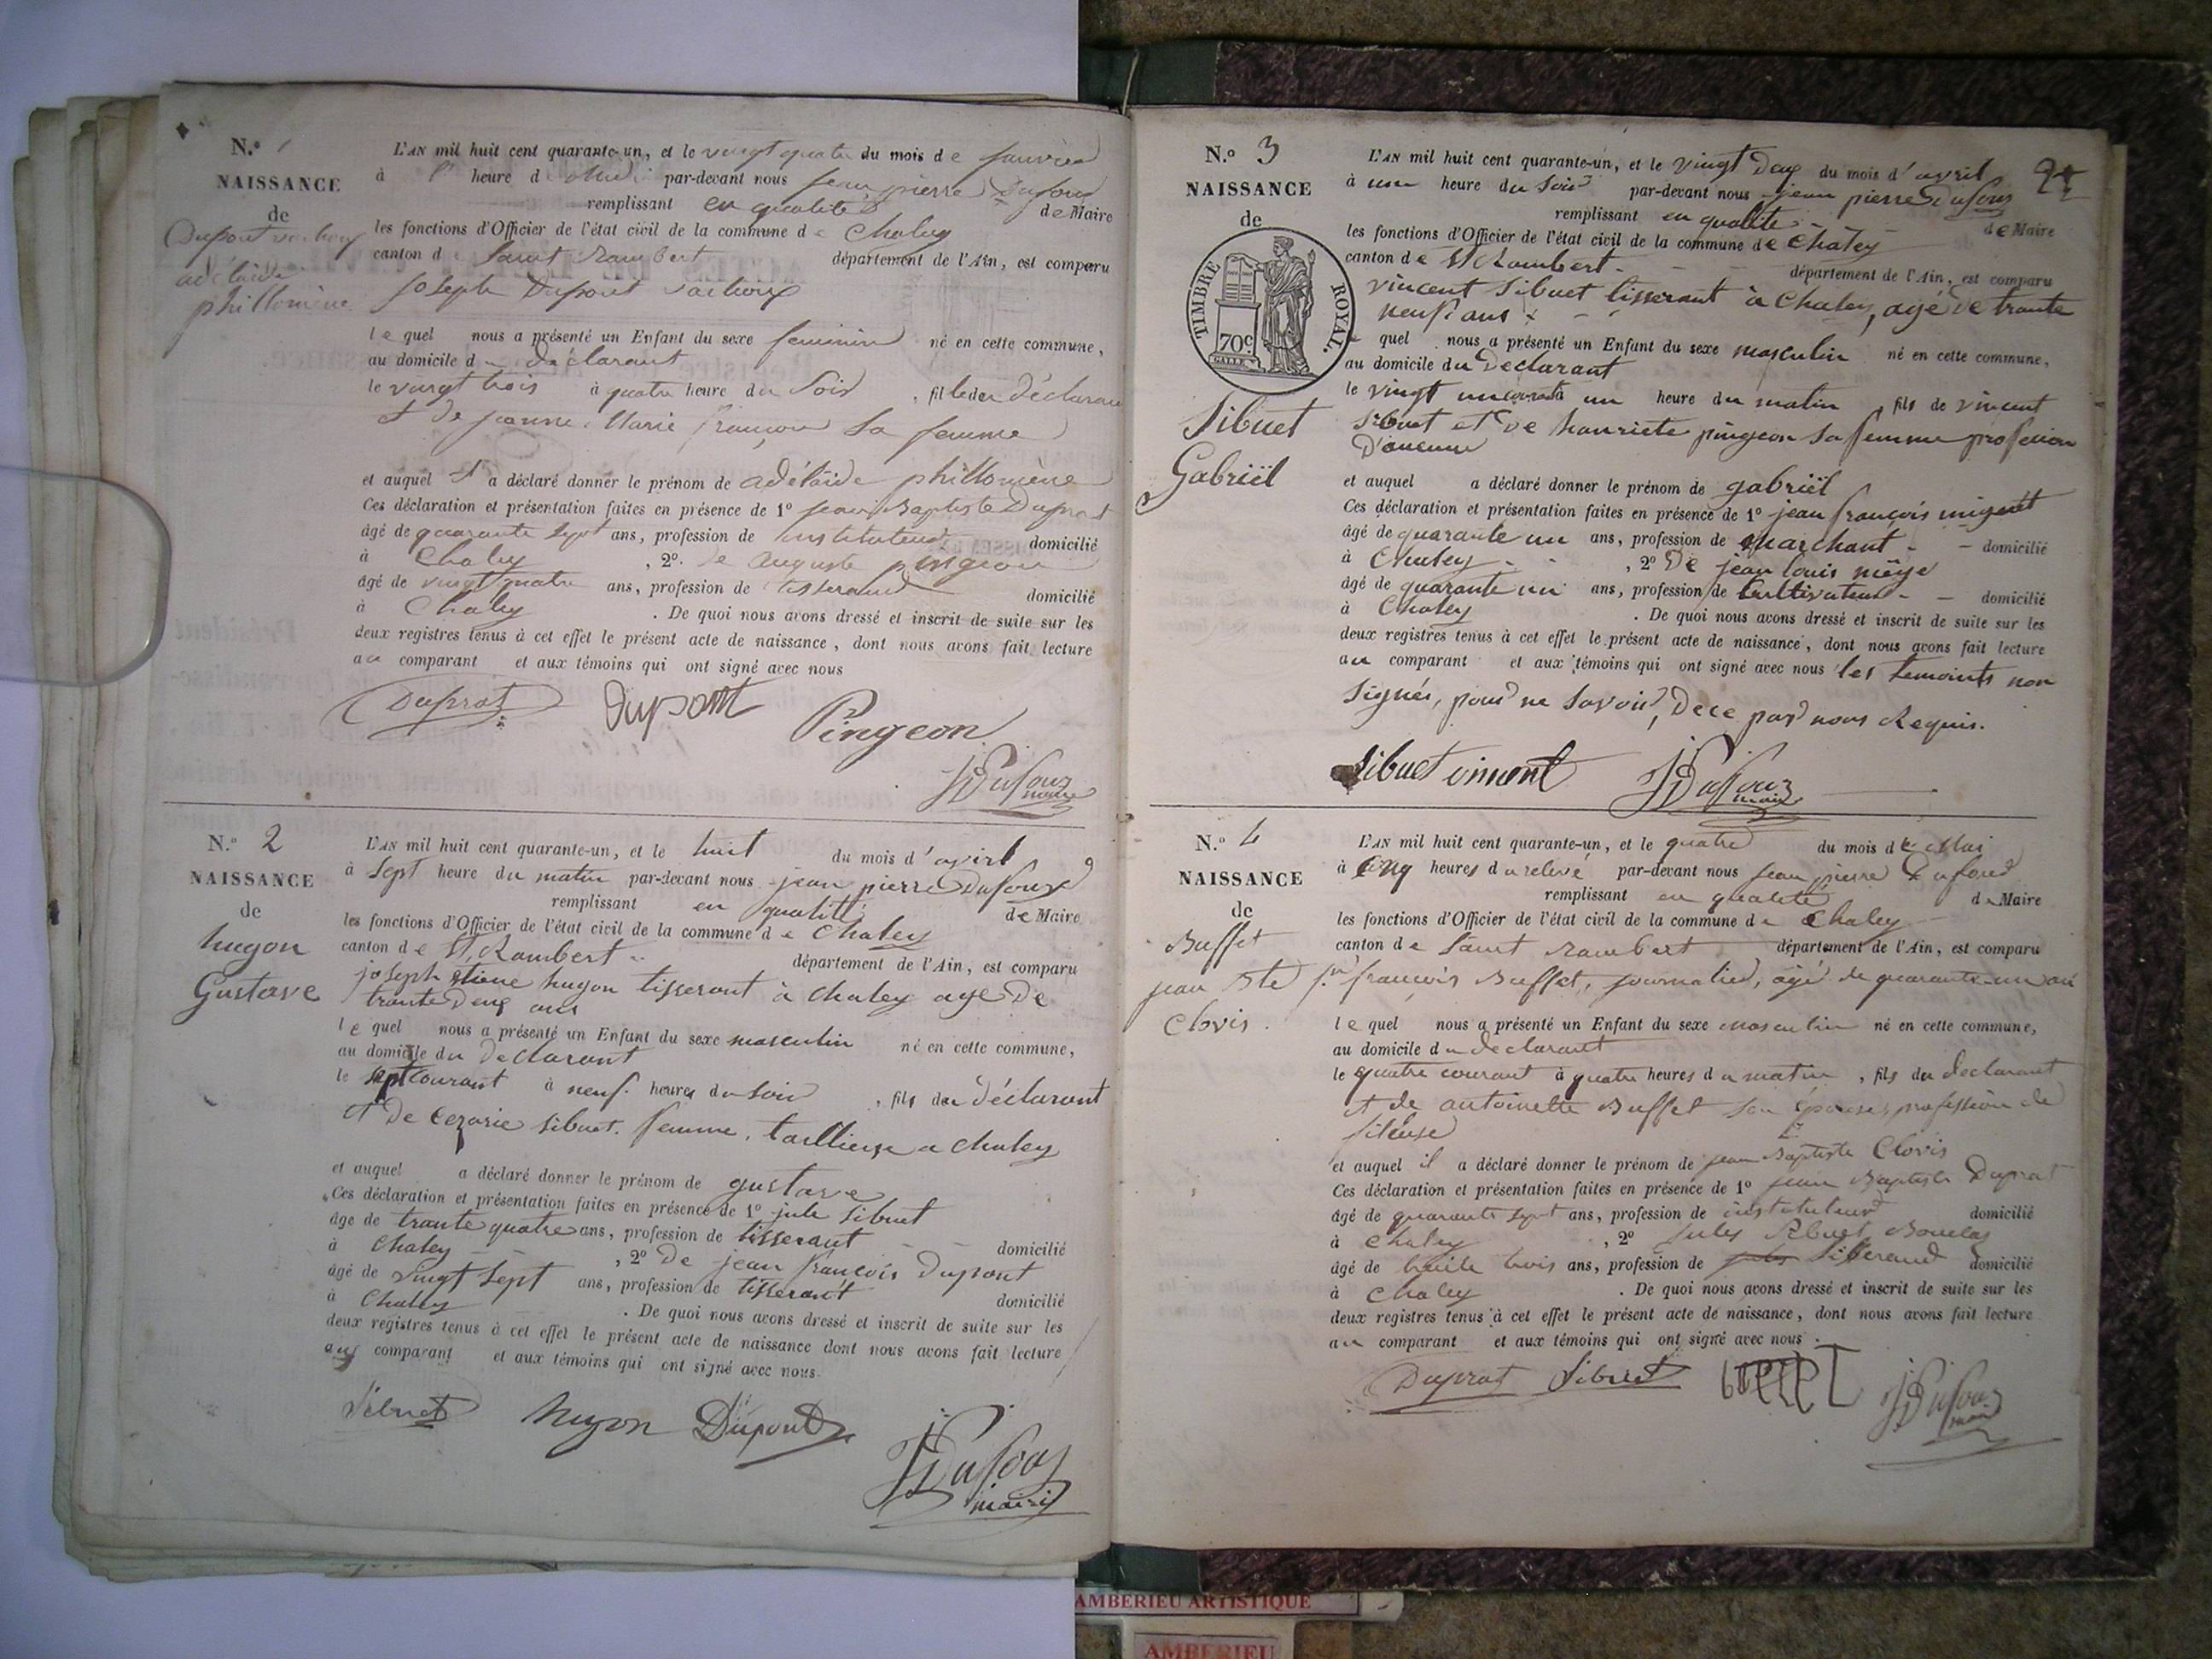 N.º 1
NAISSANCE
de
Dupont
adélaïde
phillomène
L'AN mil huit cent quarante-un, et le vingt quatre du mois de janvier
à heure de Midi par-devant nous jean pierre Dufour
remplissant en qualité de Maire
les fonctions d'Officier de l'état civil de la commune de Chaley
canton de Saint Rambert département de l'Ain, est comparu
joseph Dupont
le quel nous a présenté un Enfant du sexe feminin né en cette commune,
au domicile du déclarant
le vingt trois à quatre heure du Soir , fille du déclarant
et de jeanne Marie françoise Sa femme
et auquel il a déclaré donner le prénom de adélaïde phillomène
Ces déclaration et présentation faites en présence de 1º jean Baptiste Duprat
âgé de quarante sept ans, profession de instituteur domicilié
à Chaley , 2º. de auguste pingeon
âgé de vingt quatre ans, profession de tisserand domicilié
à Chaley . De quoi nous avons dressé et inscrit de suite sur les
deux registres tenus à cet effet le présent acte de naissance, dont nous avons fait lecture
au comparant et aux témoins qui ont signé avec nous
Duprat Dupont Pingeon
JPDufour
maire
N.º 2
NAISSANCE
de
hugon
Gustave
L'AN mil huit cent quarante-un, et le huit du mois d'avirl
à Sept heure du matin par-devant nous jean pierre Dufour
remplissant en qualité de Maire
les fonctions d'Officier de l'état civil de la commune de Chaley
canton de St. Rambert département de l'Ain, est comparu
joseph etiene hugon tisserant à chaley age De
trante deux ans
le quel nous a présenté un Enfant du sexe masculin né en cette commune,
au domicile du Declarant
le sept courant à neuf heures du soir , fils du déclarant
et De Cezarie sibuet femme, taillieuse a chaley
et auquel a déclaré donner le prénom de gustave
Ces déclaration et présentation faites en présence de 1º jule sibuet
âgé de trante quatre ans, profession de tisserant domicilié
à chaley , 2º De jean françois Dupont
âgé de vingt sept ans, profession de tisserant domicilié
à Chaley . De quoi nous avons dressé et inscrit de suite sur les
deux registres tenus à cet effet le présent acte de naissance dont nous avons fait lecture
aux comparant et aux témoins qui ont signé avec nous.
Sibuet hugon Dupont
JPDufour
maire
N.º 3
NAISSANCE
de
TIMBRE ROYAL.
70c
GALLE
Sibuet
Gabriël
L'AN mil huit cent quarante-un, et le vingt Deux du mois d'avril
à une heure du Soir par-devant nous jean pierre Dufour
remplissant en qualité de Maire
les fonctions d'Officier de l'état civil de la commune de Chaley
canton de St Rambert département de l'Ain, est comparu
vincent Sibuet tisserant à Chaley, agé de trante
neuf ans
quel nous a présenté un Enfant du sexe masculin né en cette commune,
au domicile du Declarant
le vingt un courant à un heure du matin , fils de vincent
Sibuet et de hanriete pingeon Sa femme profession
D'aucune
et auquel a déclaré donner le prénom de gabriël
Ces déclaration et présentation faites en présence de 1º jean françois mignot
âgé de quarante un ans, profession de marchant domicilié
à Chaley , 2º De jean louis
âgé de quarante un ans, profession de Cultivateur domicilié
à Chaley . De quoi nous avons dressé et inscrit de suite sur les
deux registres tenus à cet effet le présent acte de naissance, dont nous avons fait lecture
au comparant et aux témoins qui ont signé avec nous les temoints non
signés, pour ne Savoir, De ce par nous Requis.
Sibuet vincent JPDufour
maire
N.º 4
NAISSANCE
de
Buffet
jean Bte
Clovis.
L'AN mil huit cent quarante-un, et le quatre du mois de Mai
à Cinq heures du relevé par-devant nous jean pierre Dufour
remplissant en qualité de Maire
les fonctions d'Officier de l'état civil de la commune de Chaley
canton de Saint Rambert département de l'Ain, est comparu
françois Buffet, journalier, âgé de quarante-un an
le quel nous a présenté un Enfant du sexe masculin né en cette commune,
au domicile du declarant
le quatre courant à quatre heures du matin , fils du declarant
et de antoinette Buffet son épouse, profession de
fileuse
et auquel il a déclaré donner le prénom de jean Baptiste Clovis
Ces déclaration et présentation faites en présence de 1º jean Baptiste Duprat
âgé de quarante sept ans, profession de instituteur domicilié
à Chaley , 2º Jules Sibuet
âgé de trois ans, profession de tisserand domicilié
à Chaley . De quoi nous avons dressé et inscrit de suite sur les
deux registres tenus à cet effet le présent acte de naissance, dont nous avons fait lecture
au comparant et aux témoins qui ont signé avec nous.
Duprat Sibuet JPDufour
maire
AMBERIEU ARTISTIQUE
AMBERIEU